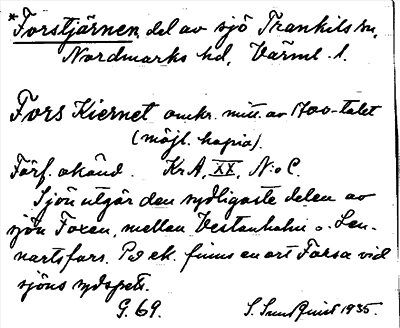 *Forstjärnen, del av sjö Trankils sn,
Nordmarks hd, Värml. l.
Fors Kiernet omkr. mitt. av 1700-talet
(möjl. kopia).
Förf. okänd. KrA, XX, N:o C.
Sjön utgör den sydligaste delen av
sjön Foxen, mellan Vestanholm o. Len-
nartsfors. På ek. finns en ort Forsa vid
sjöns sydspets.
G. 69. S. Sundquist 1935.